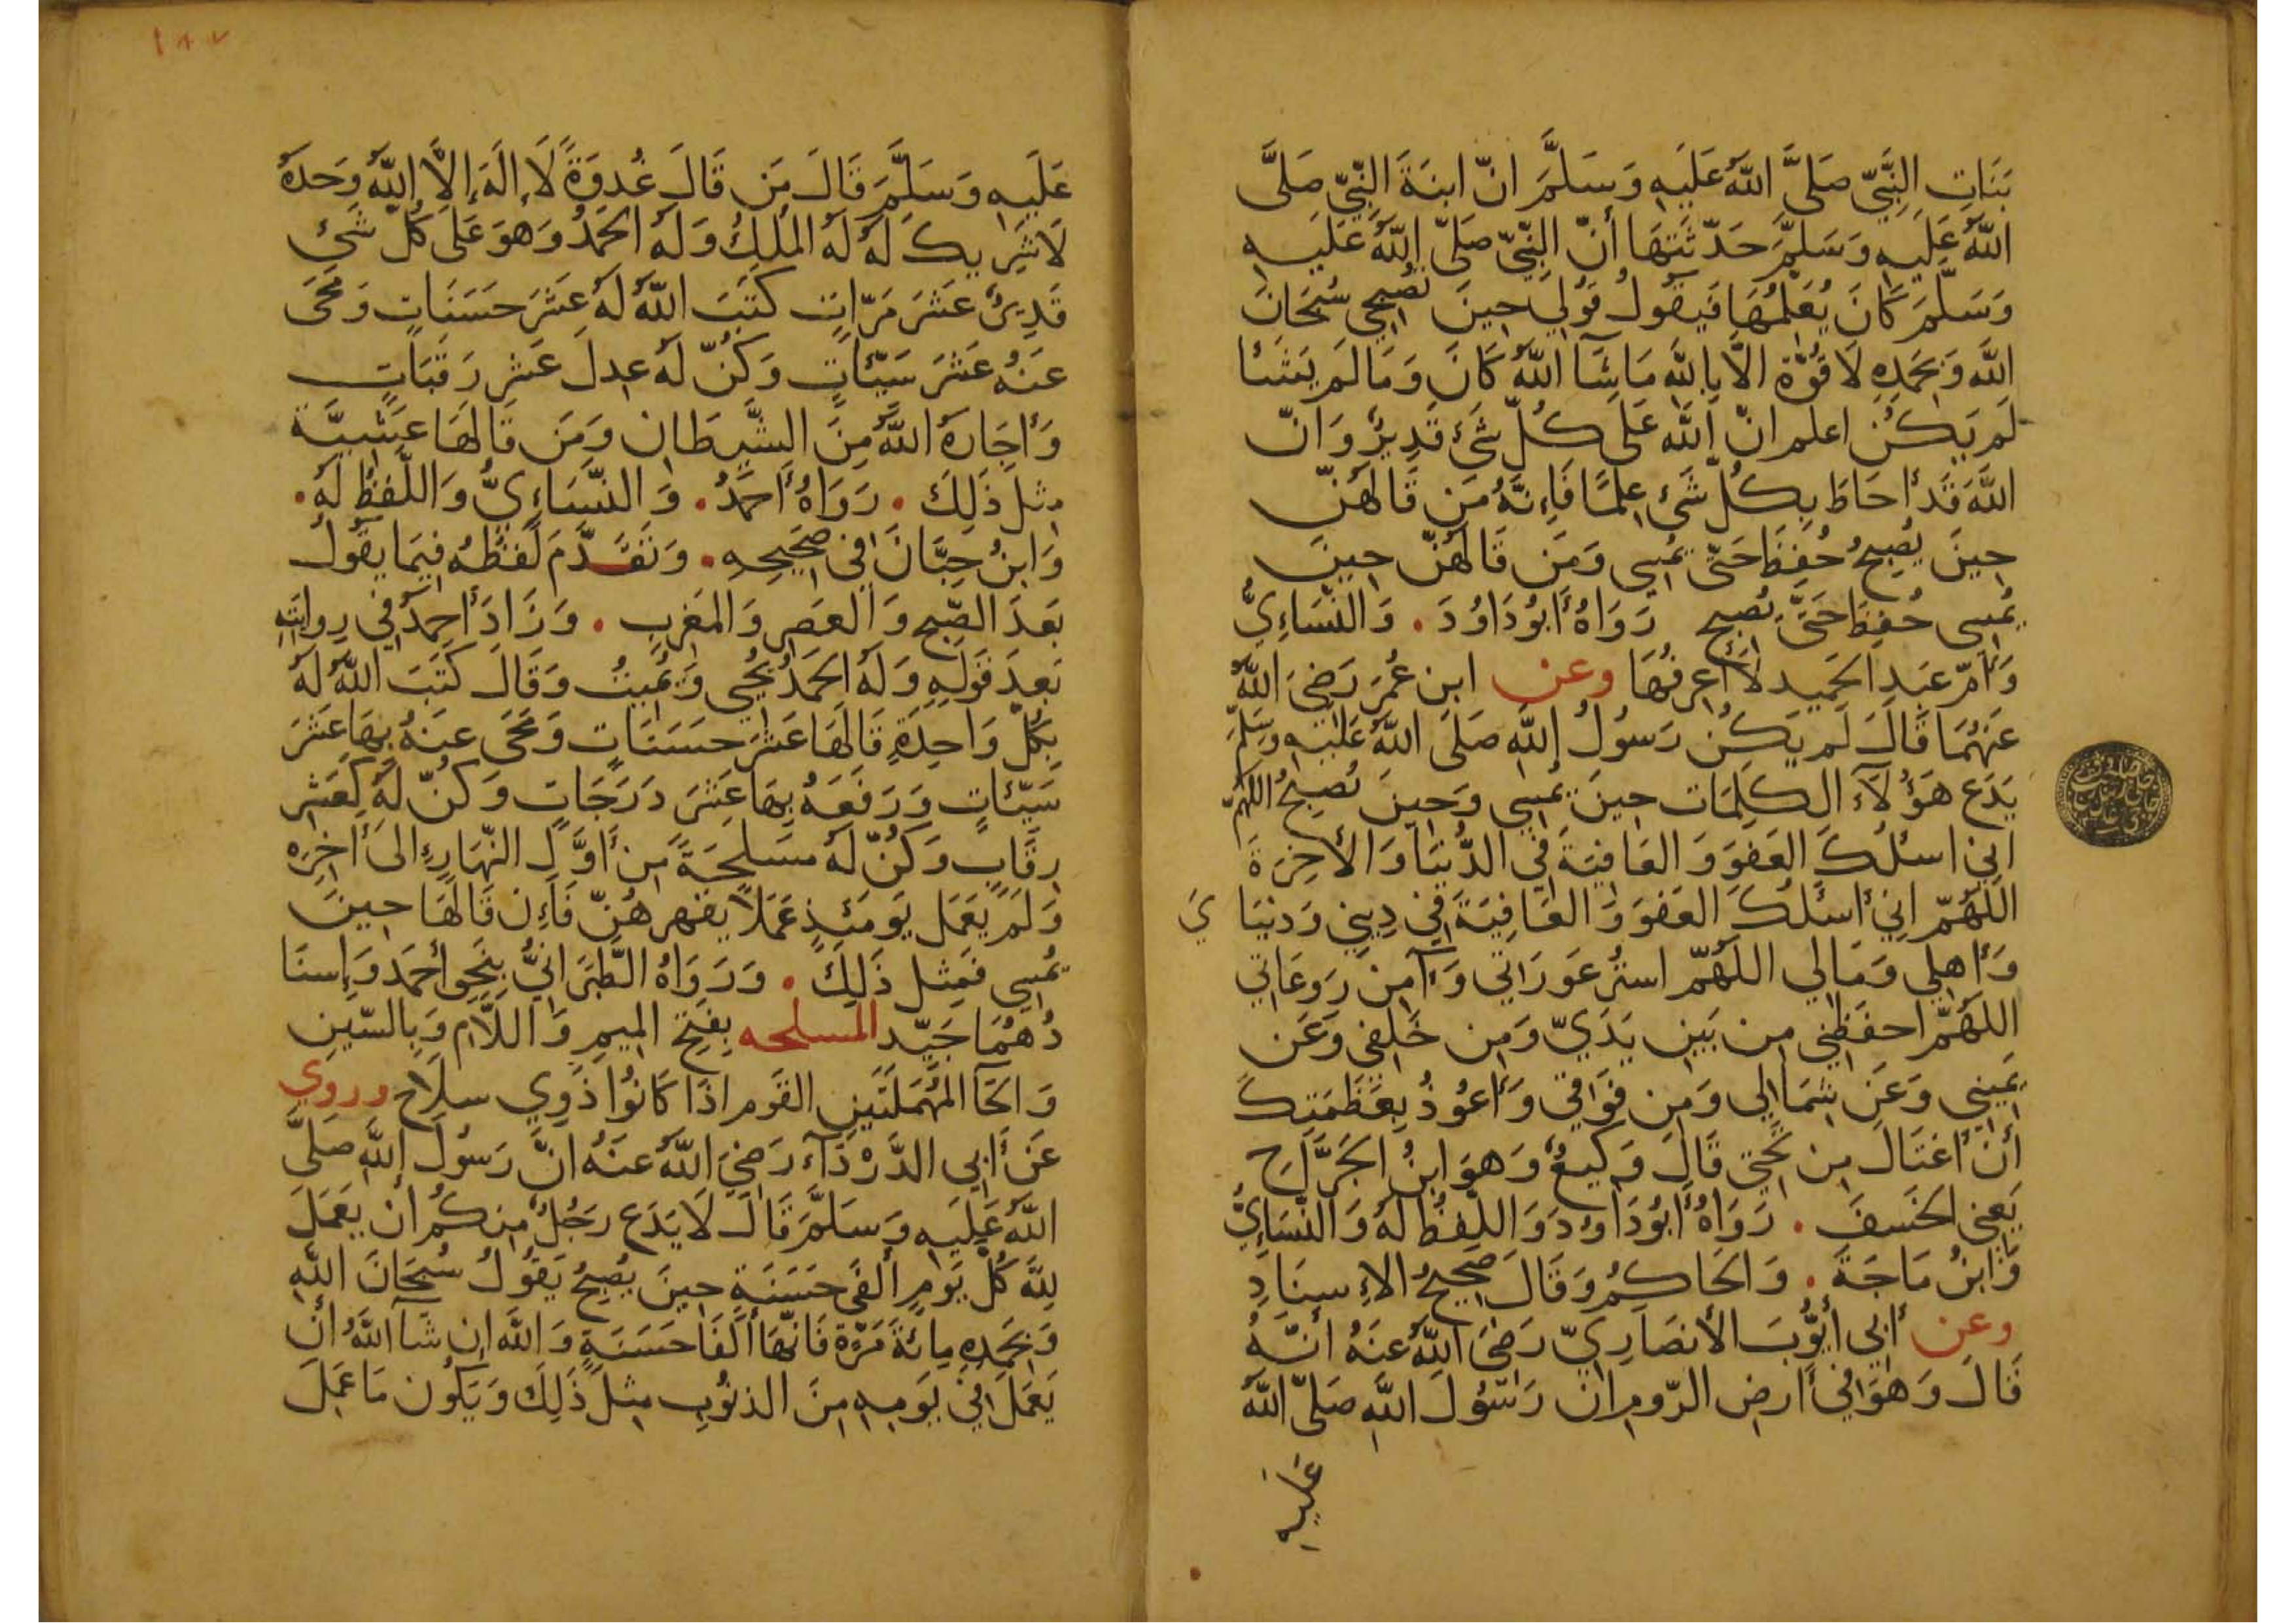 بَنَاتِ النَّبِيِّ صَلَّى اللَّهُ عَلَيهِ وَسَلَّمَ انّ ابنَةَ النَّبِيّ صَلَّى
اللَّهُ عَلَيهِ وَسَلَّمَ حَدّثَتهَا أنّ النَّبِيّ صَلّى اللَّهُ عَلَيهِ
وَسَلَّمَ كَانَ يُعَلّمُهَا فَيَقُولُ قُولِي حِينَ تُصبِحِي سُبحَانَ
اللَّهِ وَبِحَمدِهِ لَا قُوَّةَ الَّا بِاللَّهِ مَا شَآ اللَّهُ كَانَ وَمَا لَم يَشَأ
لَم يَكُن اعلَم انّ اللَّه عَلَى كُلّ شَئ قَدِيرٌ وَانّ
اللَّهَ قَد أحَاطَ بِكُلّ شَئ عِلمًا فَإِنّهُ مَن قَالَهُنّ
حِينَ يُصبِحُ حُفِظَ حَتّى يُمسِي وَمَن قَالَهُنّ حِينَ
يُمسِى حُفِظَ حَتَّى يُصبِح رَوَاهُ أبُو دَاوُدَ . وَالنّسَاءِيُّ
وَأمّ عَبدِ الحَمِيدِ لَا أعرِفُهَا وعن ابن عُمَرَ رَضِيَ اللَّهُ
عَنهُمَا قَالَ لَم يَكُن رَسُولُ اللَّهِ صَلَى اللَّهُ عَلَيهِ وسَلّمَ
يَدَع هَؤُلَآءِ الكَلِمَات حِينَ يُمسِي وَحِينَ يُصبِحُ اللَّهُمّ
انِي اسئَلُكَ العَفوَ وَالعَافِيَةَ فِي الدُّنيَا وَالأخِرَةَ
اللّهُمّ انِي أسئَلُكَ العَفوَ وَالعَافِيَةَ فِي دِينِي وَدنيَا يَ
وَأهلِي وَمَالِي اللّهُمّ استُر عَورَاتِي وَآمِن رَوعَاتِي
اللّهُمّ احفَظنِي مِن بَينِ يَدَيّ وَمِن خَلفِي وَعَن
يَمِينِي وَعَن شِمَالِي وَمِن فَوقِي وَأعُوذُ بِعَظَمَتِكَ
أن أغتَالَ مِن تَحتِي قَالَ وَكِيعٌ وَهوَ ابنُ الجَرّاحِ
يَعنِي الخَسفَ . رَوَاهُ أبُو دَاوُدَ وَاللّفظُ لَهُ وَالنّسَاءِيُّ
وَابنُ مَاجَةَ . وَالحَاكِمُ وَقَالَ صَحِيحُ الإِسنَادِ
وعن أبِي أيُّوبَ الأنصَارِيّ رَضِيَ اللَّهُ عَنهُ أنّهُ
قَالَ وَهوَ فِي أرضِ الرّومِ انّ رَسُولَ اللَّهِ صَلّى اللَّهُ
عَلَيهِ
١٨٧
عَلَيهِ وَسَلَّمَ قَالَ مَن قَالَ غُدوَةً لَا إلَهَ إلَّا اللَّهُ وَحدَهُ
لَا شَرِيكَ لَهُ لَهُ المُلكُ وَلَهُ الحَمدُ وَهوَ عَلَى كُلّ شَئ
قَدِيرٌ عَشرَ مَرّاتٍ كَتَبَ اللَّهُ لَهُ عَشرَ حَسَنَاتٍ وَمَحَى
عَنهُ عَشرَ سَيّئاتٍ وَكُنّ لَهُ عِدلَ عَشرِ رَقَبَاتٍ
وَأجَارَهُ اللَّهُ مِنَ الشَّيطَانِ وَمَن قَالَهَا عَشِيَّةً
مِثلَ ذَلِكَ . رَوَاهُ أحمَدُ . وَالنّسَاءِيُّ وَاللّفظُ لَهُ .
وَابنُ حِبَّانَ فِي صَحِيحِهِ . وَتَقَدَّمَ لَفظُهُ فِيمَا يقُولُ
بَعدَ الصّبحِ وَالعَصرِ وَالمَغرِبِ . وَزَادَ أحمَدُ فِي رِوايَتِهِ
بَعدَ قَولِهِ وَلَهُ الحَمدُ يُحيِي وَيُمِيتُ وَقَالَ كَتَبَ اللَّهُ لَهُ
بِكُلّ وَاحِدَةٍ قَالَهَا عَشرَ حَسَنَاتٍ وَمَحَى عَنهُ بِهَا عَشرَ
سَيّئاتٍ وَرَفَعَهُ بِهَا عَشرَ دَرَجَاتٍ وَكُنّ لَهُ كَعَشرِ
رِقَابٍ وَكُنّ لَهُ مَسلَحَةً مِن أوَّلِ النّهَارِ إلَى أخِرِه
وَلَم يَعمَل يَومَئذٍ عَمَلًا يَقهرهُنّ فَإِن قَالَهَا حِينَ
يُمسِي فَمِثل ذَلِكَ . وَرَوَاهُ الطّبَرَانِيُّ بِنَحوِ أحمَدَ وَإسنَا
دُهُمَا جَيّد المسلحه بِفَتحِ المِيمِ وَاللَّامِ وَبِالسّينِ
وَالحَآ المُهمَلَتَينِ القَوم اذَا كَانُوا ذَوِي سِلَاح وروي
عَن أبِي الدَّردَآءِ رَضِيَ اللَّهُ عَنهُ انَّ رَسُولَ اللَّهِ صَلَّى
اللَّهُ عَلَيهِ وَسَلَّمَ قَالَ لَا يَدَع رَجُلٌ مِنكُم أن يَعمَلَ
لِلَّهِ كُلّ يَومٍ ألفَي حَسَنَةٍ حِينَ يُصبِحُ يَقُولُ سُبحَانَ اللَّهِ
وَبِحَمدِهِ مِائَةَ مَرَّةٍ فَانّهَا ألفَا حَسَنَةٍ وَاللَّهِ ان شَآ اللَّهُ ان
يَعمَلَ فِي يَومِهِ مِنَ الذنُوبِ مِثلَ ذَلِكَ وَيَكُون مَا عَمِلَ